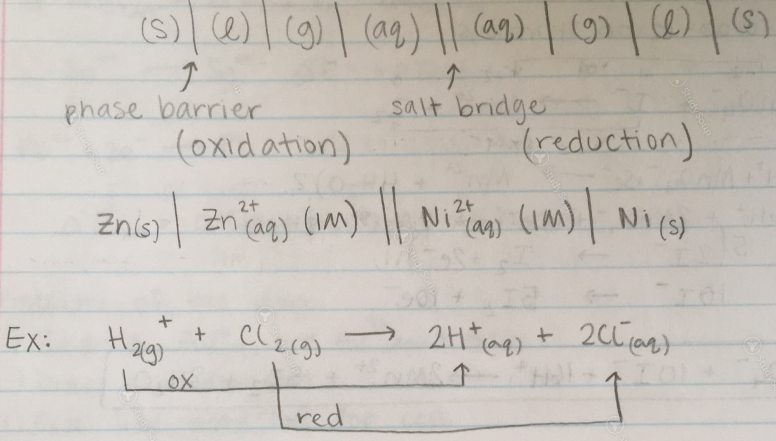 (s) | (l) | (g) | (aq) || (aq) | (g) | (l) | (s)
↑ ↑
phase barrier salt bridge
(oxidation) (reduction)
Zn(s) | Zn²⁺(aq) (1M) || Ni²⁺(aq) (1M) | Ni(s)
Ex: H₂(g)⁺ + Cl₂(g) → 2H⁺(aq) + 2Cl⁻(aq)
ox
red